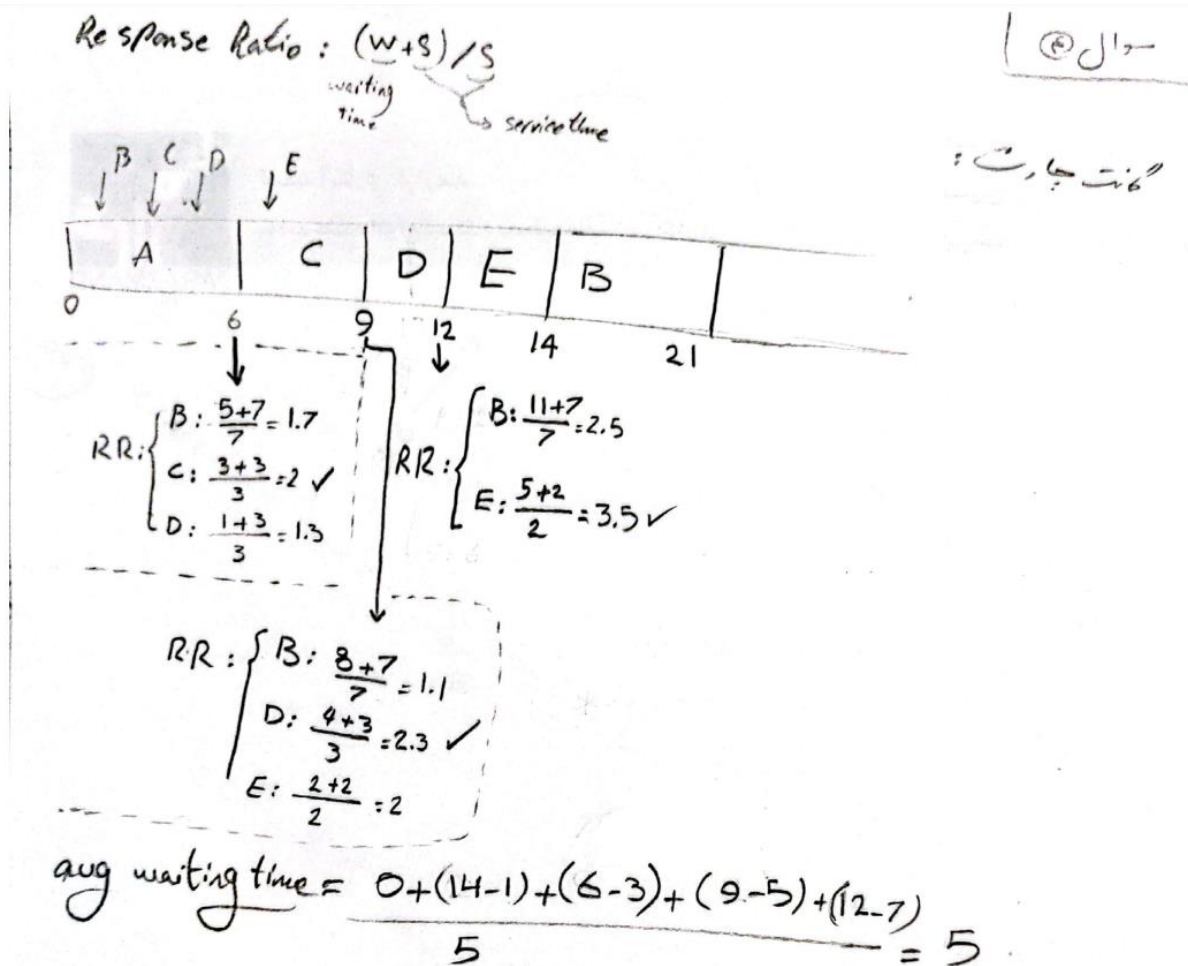 Response Ratio : (W+S)/S
waiting time
service time
سوال ④
گانت چارت :
B C D E
A C D E B
0 6 9 12 14 21
RR: B: 5+7/7 = 1.7
C: 3+3/3 = 2 ✓
D: 1+3/3 = 1.3
RR: B: 11+7/7 = 2.5
E: 5+2/2 = 3.5 ✓
RR: B: 8+7/7 = 1.1
D: 4+3/3 = 2.3 ✓
E: 2+2/2 = 2
avg waiting time = 0+(14-1)+(6-3)+(9-5)+(12-7)/5 = 5